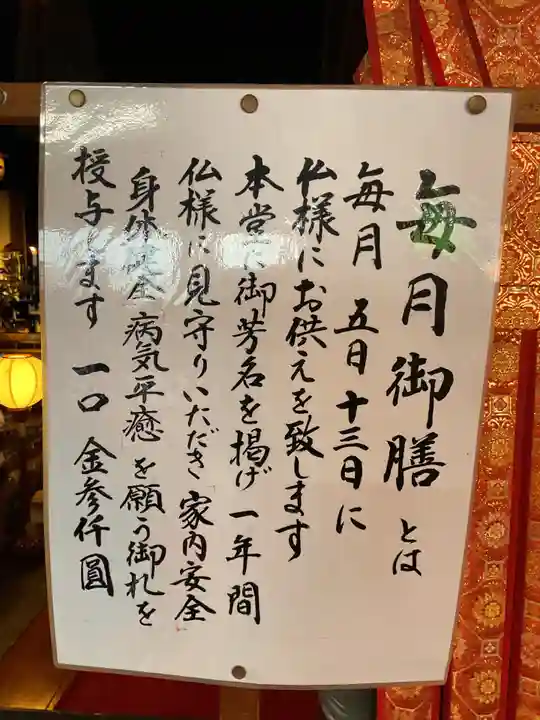 毎月御膳とは
毎月 五日 十三日に
仏様にお供えを致します
本堂に御芳名を掲げ一年間
仏様に見守りいただき「家内安全
身体健全 病気平癒」を願う御札を
授与します 一口 金参仟圓